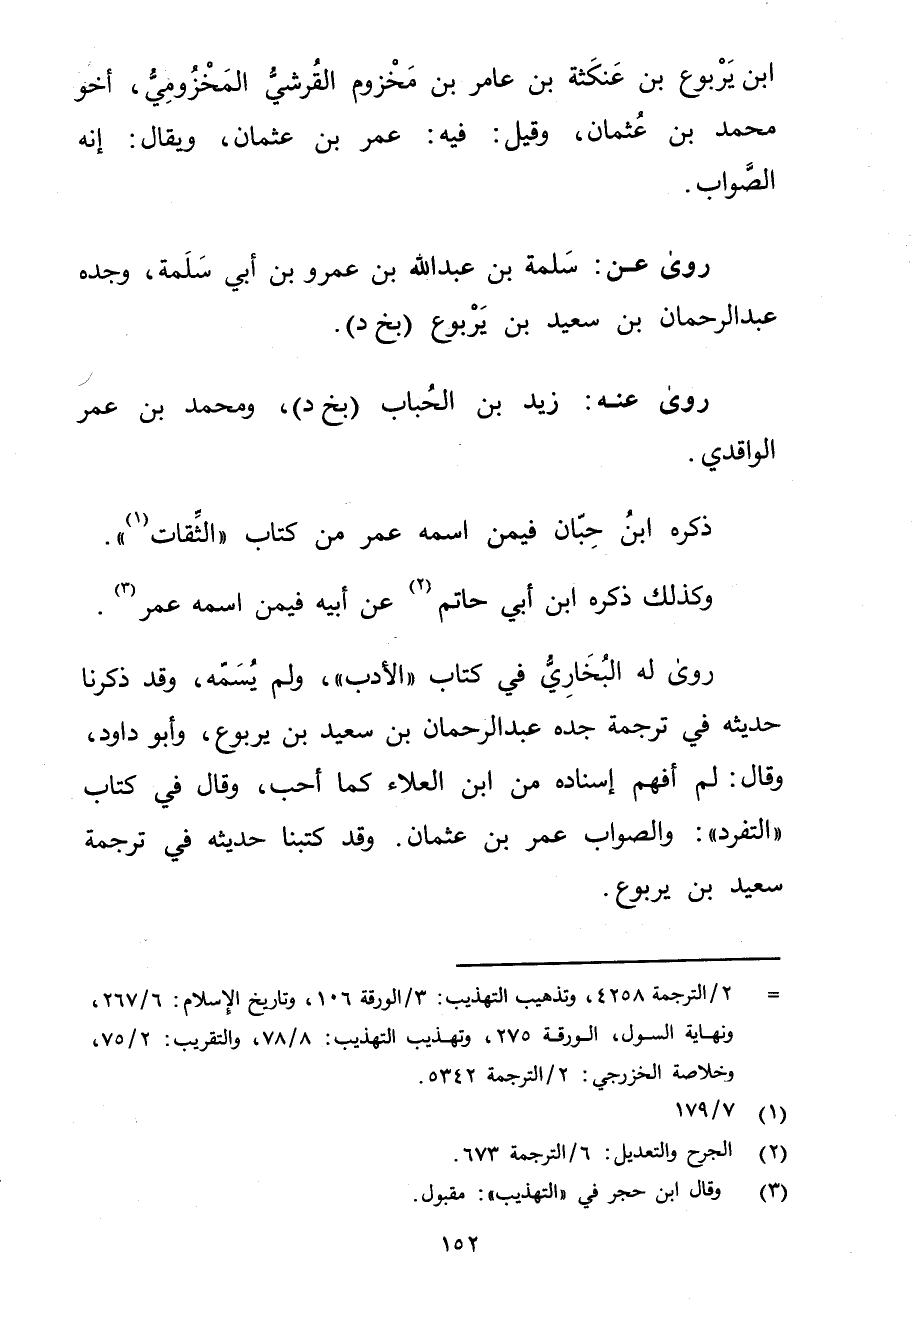 ابن يَرْبوع بن عَنكَثة بن عامر بن مَخْزوم القُرشيُّ المَخْزُوميُّ، أخو
محمد بن عُثمان، وقيل: فيه: عمر بن عثمان، ويقال: إنه
الصَّواب.
روىٰ عـن: سَلمة بن عبدالله بن عمرو بن أبي سَلَمة، وجده
عبدالرحمان بن سعيد بن يَرْبوع (بخ د).
روىٰ عنـه: زيد بن الحُباب (بخ د)، ومحمد بن عمر
الواقدي.
ذكره ابنُ حِبّان فيمن اسمه عمر من كتاب «الثِّقات(١)».
وكذلك ذكره ابن أبي حاتم(٢) عن أبيه فيمن اسمه عمر(٣).
روىٰ له البُخَاريُّ في كتاب «الأدب»، ولم يُسَمّه، وقد ذكرنا
حديثه في ترجمة جده عبدالرحمان بن سعيد بن يربوع، وأبو داود،
وقال: لم أفهم إسناده من ابن العلاء كما أحب، وقال في كتاب
«التفرد»: والصواب عمر بن عثمان. وقد كتبنا حديثه في ترجمة
سعيد بن يربوع.
= ٢/الترجمة ٤٢٥٨، وتذهيب التهذيب: ٣/الورقة ١٠٦، وتاريخ الإسلام: ٢٦٧/٦،
ونهـاية السـول، الـورقـة ٢٧٥، وتهـذيب التهذيب: ٧٨/٨، والتقريب: ٧٥/٢،
وخلاصة الخزرجي: ٢/الترجمة ٥٣٤٢.
(١) ١٧٩/٧
(٢) الجرح والتعديل: ٦/الترجمة ٦٧٣.
(٣) وقال ابن حجر في «التهذيب»: مقبول.
١٥٢